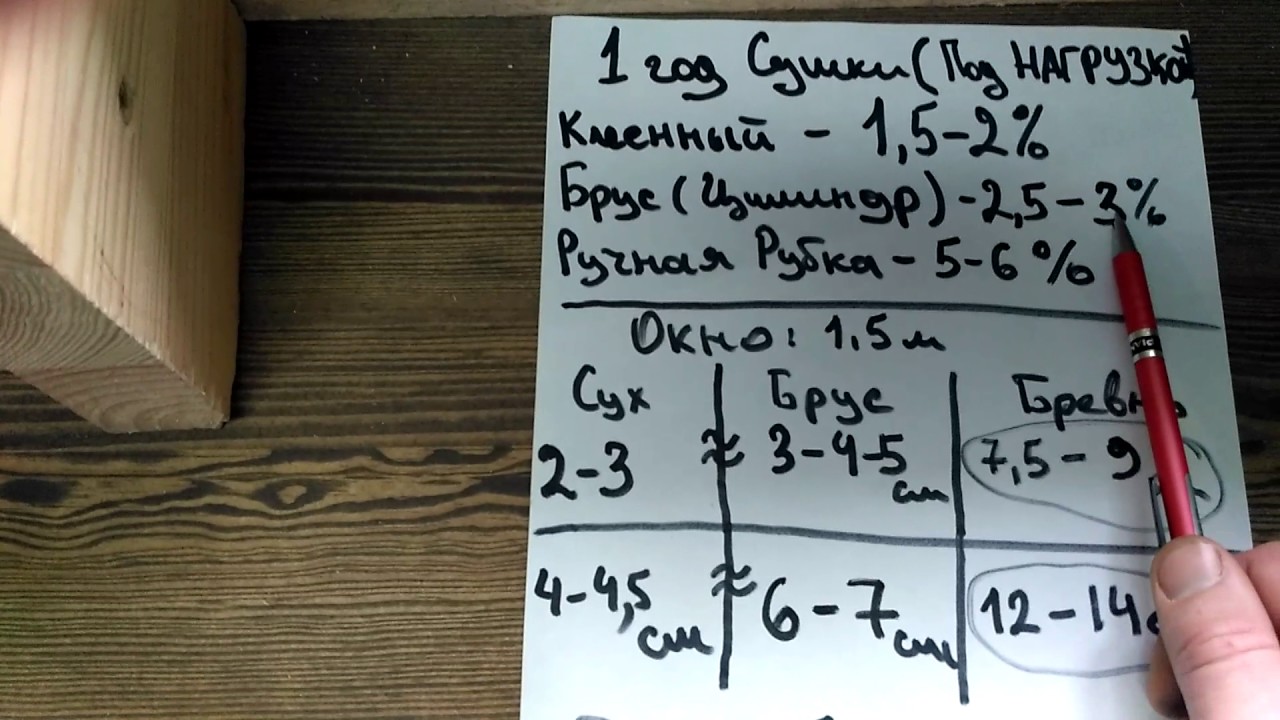 1 год Сушки (Под НАГРУЗКОЙ)
Клеенный - 1,5-2%
Брус (Цилиндр) - 2,5-3%
Ручная Рубка - 5-6%
Окно: 1,5м
Сух Брус Бревно
2-3 ≈ 3-4-5 см 7,5-9
4-4,5 см ≈ 6-7 см 12-14